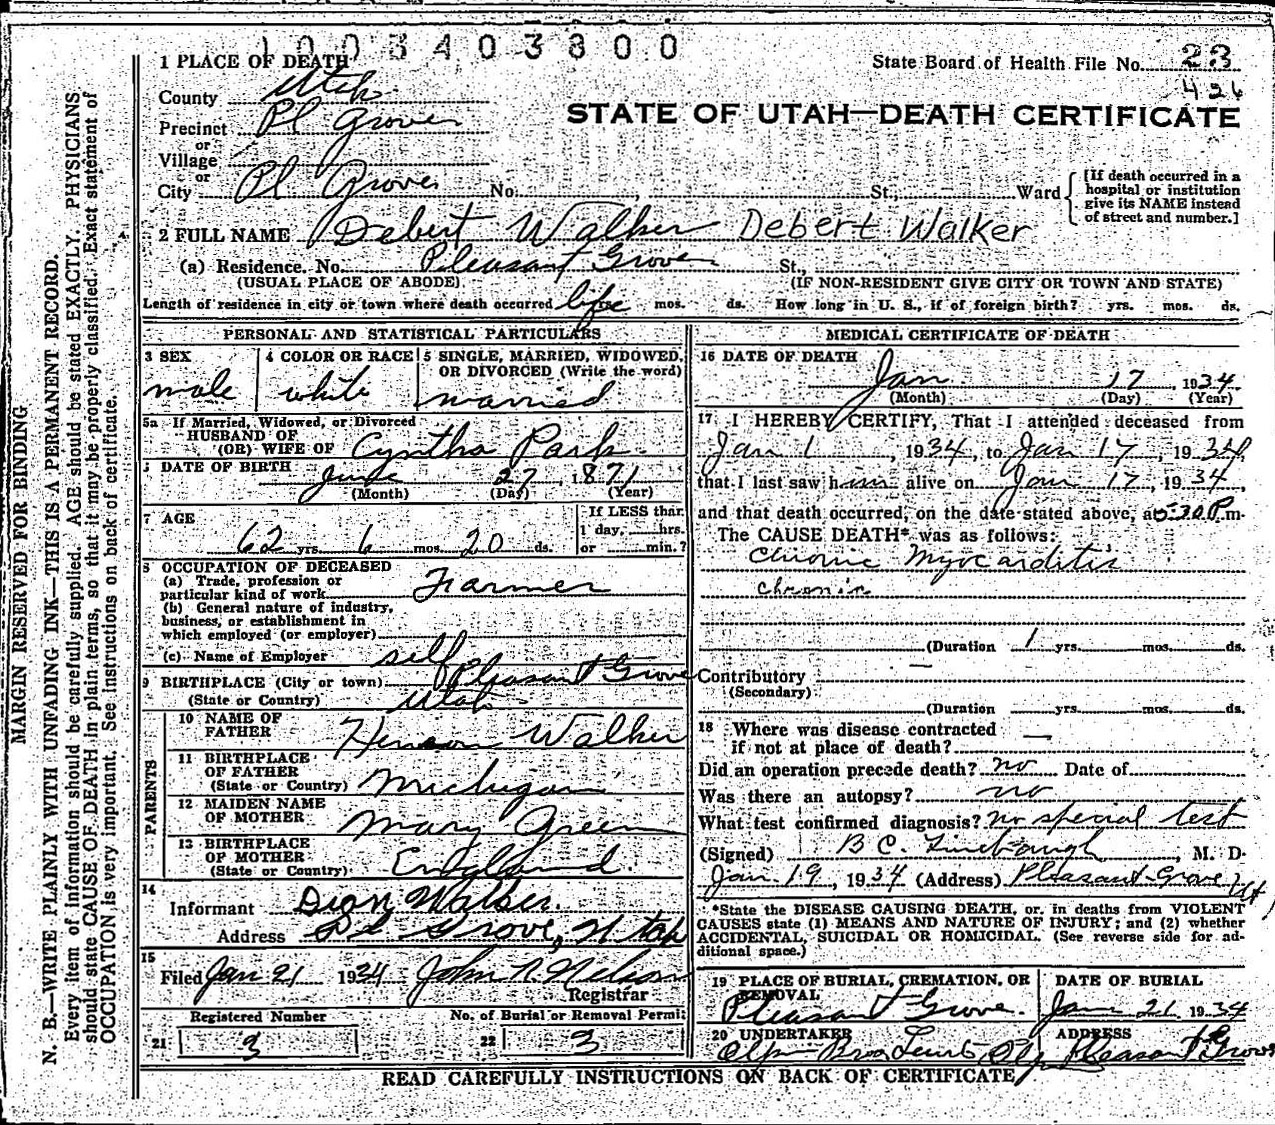 1003403800
1 PLACE OF DEATH
State Board of Health File No. 23
426
County Utah
STATE OF UTAH—DEATH CERTIFICATE
Precinct Pl Grove
or
Village
or
City Pl Grove No. St., Ward
[If death occurred in a hospital or institution give its NAME instead of street and number.]
2 FULL NAME Debert Walker Debert Walker
(a) Residence. No. Pleasant Grove St.,
(USUAL PLACE OF ABODE) (IF NON-RESIDENT GIVE CITY OR TOWN AND STATE)
Length of residence in city or town where death occurred life mos. ds. How long in U. S., if of foreign birth? yrs. mos. ds.
PERSONAL AND STATISTICAL PARTICULARS
3 SEX male
4 COLOR OR RACE white
5 SINGLE, MARRIED, WIDOWED, OR DIVORCED (Write the word) married
5a If Married, Widowed, or Divorced
HUSBAND OF
(OR) WIFE OF Cyntha Park
DATE OF BIRTH June 27, 1871
(Month) (Day) (Year)
7 AGE 62 yrs. 6 mos. 20 ds.
If LESS than 1 day, hrs. or min.?
8 OCCUPATION OF DECEASED
(a) Trade, profession or particular kind of work Farmer
(b) General nature of industry, business, or establishment in which employed (or employer)
(c) Name of Employer self
9 BIRTHPLACE (City or town) Pleasant Grove
(State or Country) Utah
PARENTS
10 NAME OF FATHER Henson Walker
11 BIRTHPLACE OF FATHER (State or Country) Michigan
12 MAIDEN NAME OF MOTHER Mary Green
13 BIRTHPLACE OF MOTHER (State or Country) England
14 Informant Dion Walker
Address Pl Grove, Utah
15 Filed Jan 21 1934 John R. Nelson
Registrar
Registered Number
21 3
No. of Burial or Removal Permit
22 3
MEDICAL CERTIFICATE OF DEATH
16 DATE OF DEATH
Jan 17, 1934
(Month) (Day) (Year)
17 I HEREBY CERTIFY, That I attended deceased from
Jan 1, 1934, to Jan 17, 1934,
that I last saw him alive on Jan 17, 1934,
and that death occurred, on the date stated above, at 5:30 P.m.
The CAUSE DEATH* was as follows:
Chronic Myocarditis
chronic
(Duration 1 yrs. mos. ds.
Contributory —
(Secondary)
(Duration yrs. mos. ds.
18 Where was disease contracted
if not at place of death? —
Did an operation precede death? no Date of
Was there an autopsy? no
What test confirmed diagnosis? no special test
(Signed) B C. Linebaugh, M. D.
Jan 19, 1934 (Address) Pleasant Grove Ut
*State the DISEASE CAUSING DEATH, or, in deaths from VIOLENT
CAUSES state (1) MEANS AND NATURE OF INJURY; and (2) whether
ACCIDENTAL, SUICIDAL OR HOMICIDAL. (See reverse side for ad-
ditional space.)
19 PLACE OF BURIAL, CREMATION, OR REMOVAL Pleasant Grove.
DATE OF BURIAL Jan 21 1934
20 UNDERTAKER
ADDRESS Pleasant Grove
READ CAREFULLY INSTRUCTIONS ON BACK OF CERTIFICATE
MARGIN RESERVED FOR BINDING
N. B.—WRITE PLAINLY WITH UNFADING INK—THIS IS A PERMANENT RECORD.
Every item of information should be carefully supplied. AGE should be stated EXACTLY. PHYSICIANS
should state CAUSE OF DEATH in plain terms, so that it may be properly classified. Exact statement of
OCCUPATION is very important. See instructions on back of certificate.